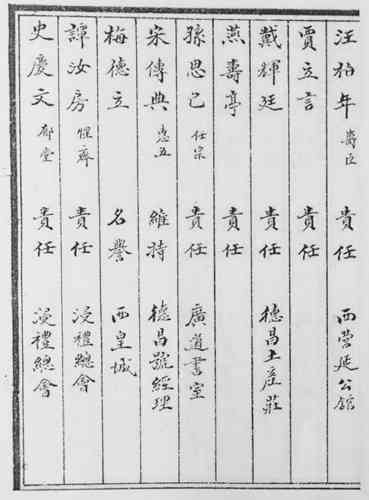 汪柏年 喬臣 責任 西營延公館
賈立言 責任
戴輝廷 責任 德昌土產莊
燕壽亭 責任
孫思己 任宗 責任 廣道書室
宋傳典 憲五 維持 德昌號經理
梅德立 名譽 西皇城
譚汝房 惺齋 責任 浸禮總會
史慶文 郁堂 責任 浸禮總會